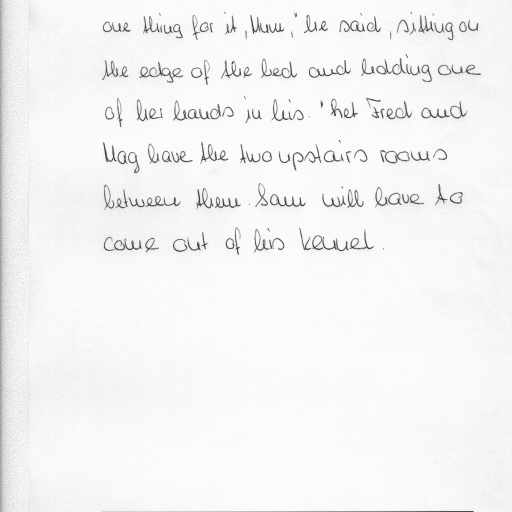 one thing for it, Mum," he said, sitting on
the edge of the bed and holding one
of her hands in his. 'Let Fred and
Mag have the two upstairs rooms
between them. Sam will have to
come out of his kennel.